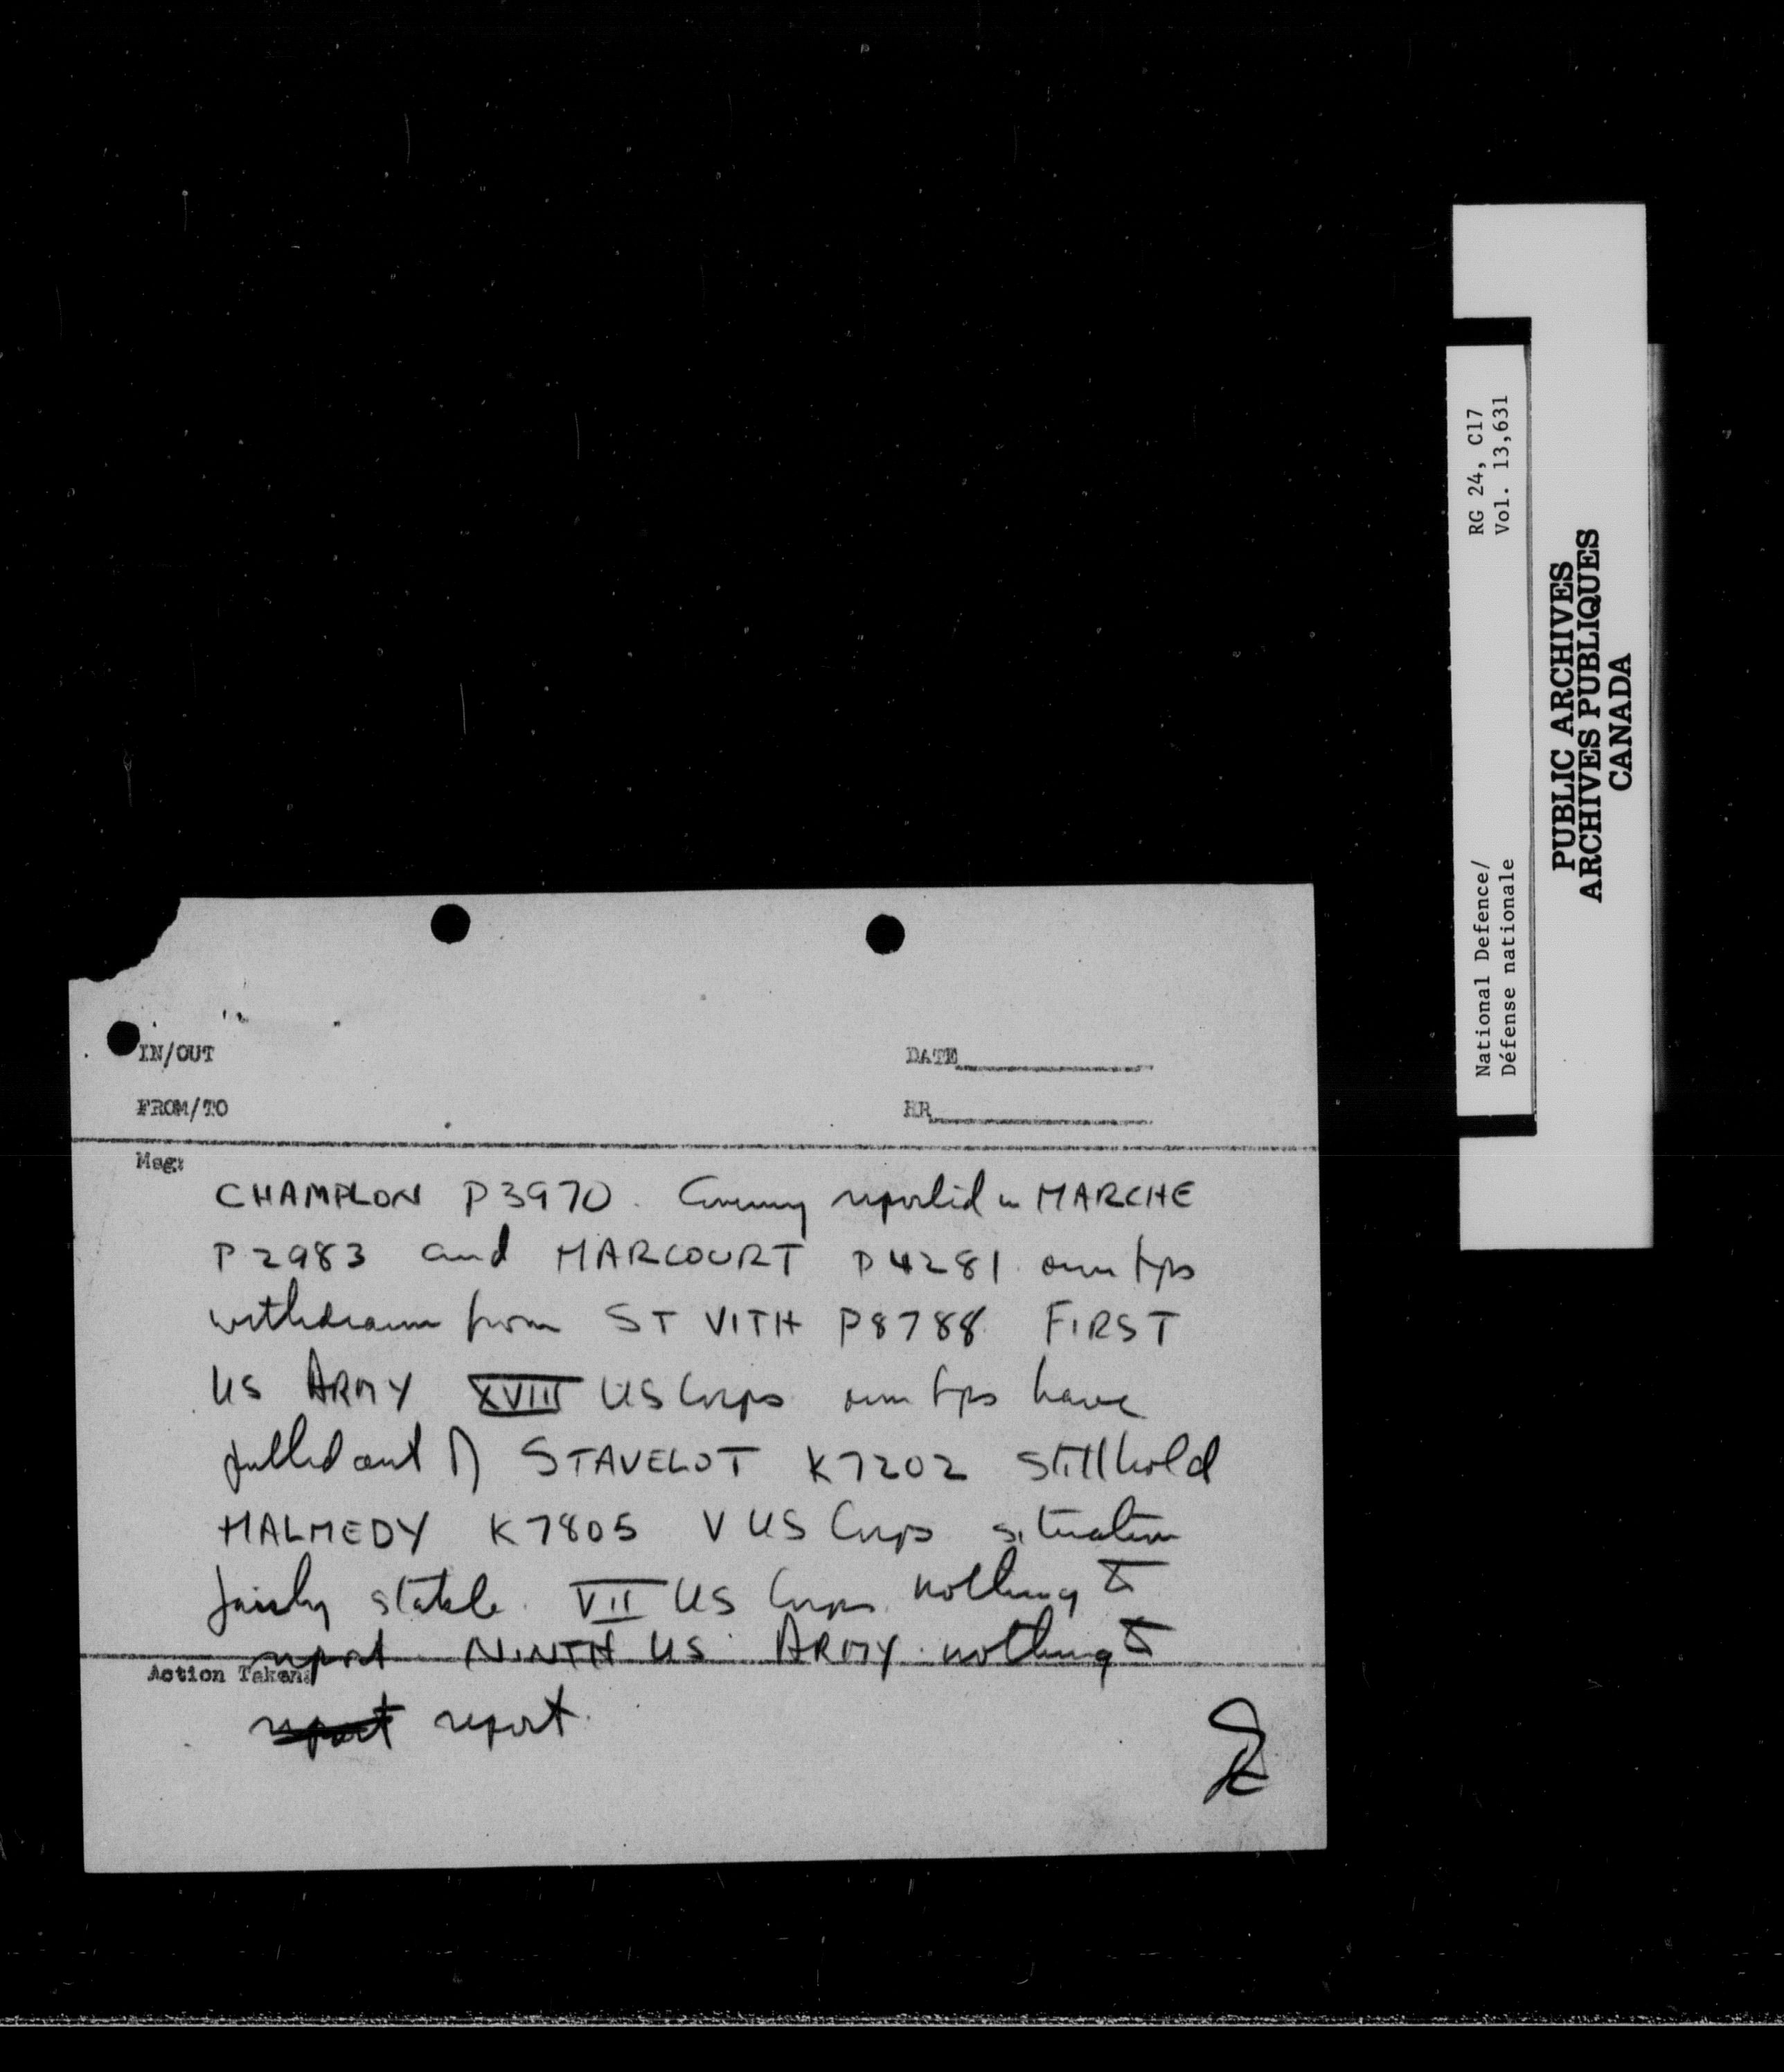 IN/OUT
DATE
FROM/TO
HR
Msg:
CHAMPLON P3970. Enemy reported in MARCHE
P2983 and MARCOURT P4281 own tps
withdrawn from ST VITH P8788 FIRST
US ARMY XVIII US Corps own tps have
pulled out of STAVELOT K7202 still hold
MALMEDY K7805 V US Corps situation
fairly stable. VII US Corps nothing to
report. NINTH US ARMY nothing to
Action Taken:
report report.
RG 24, C17
Vol. 13,631
National Defence/
Défense nationale
PUBLIC ARCHIVES
ARCHIVES PUBLIQUES
CANADA